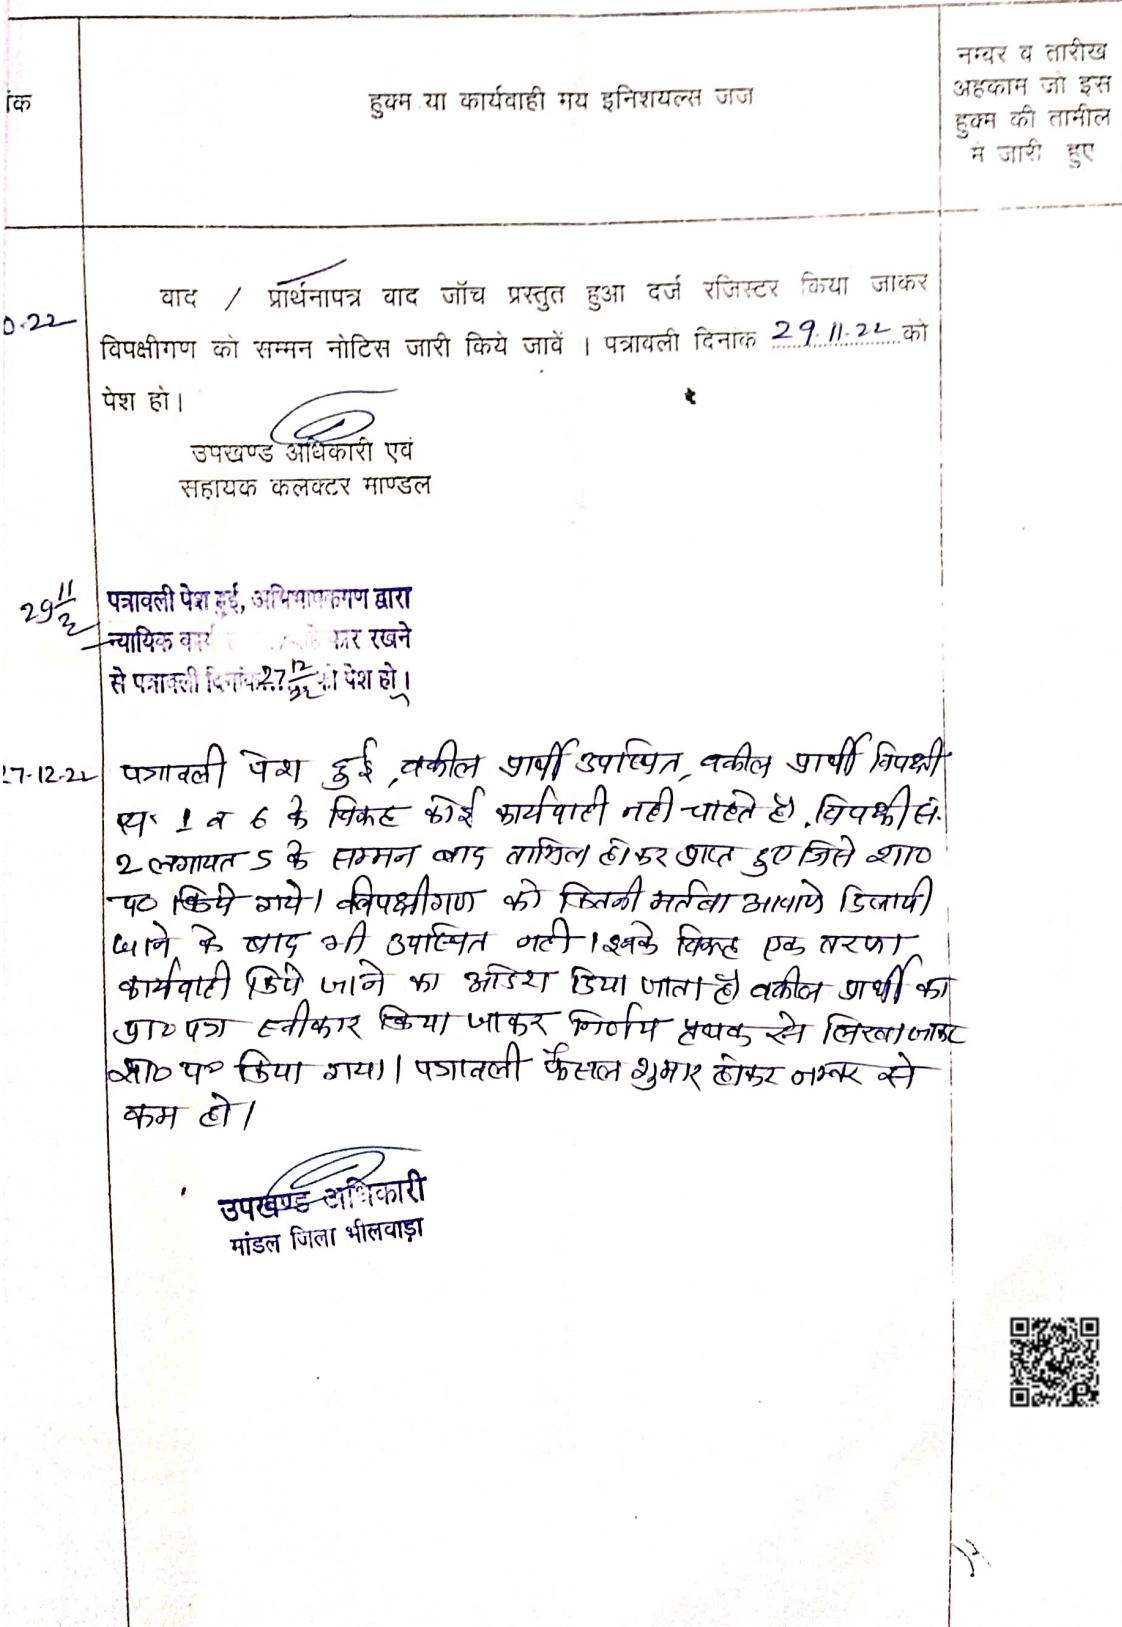 ांक
हुक्म या कार्यवाही मय इनिशयल्स जज
नम्बर व तारीख
अहकाम जो इस
हुक्म की तामील
में जारी हुए
0-22
वाद / प्रार्थनापत्र वाद जॉच प्रस्तुत हुआ दर्ज रजिस्टर किया जाकर
विपक्षीगण को सम्मन नोटिस जारी किये जावें । पत्रावली दिनांक 29.11.22 को
पेश हो।
उपखण्ड अधिकारी एवं
सहायक कलक्टर माण्डल
29 11
पत्रावली पेश हुई, अभिभाषकगण द्वारा
न्यायिक कार्य रखने
से पत्रावली दिनांक 27 12/22 को पेश हो।
27-12-22
पत्रावली पेश हुई, वकील प्रार्थी उपस्थित, वकील प्रार्थी विपक्षी
स. 1 व 6 के विरूद्ध कोई कार्यवाही नही चाहते है। विपक्षी सं.
2 लगायत 5 के सम्मन बाद तामिल होकर प्राप्त हुए जिसे शा०
प० किये गये। विपक्षीगण को कितनी मर्तबा आवाजे दिलायी
जाने के बाद भी उपस्थित नही। इनके विरूद्ध एक तरफा
कार्यवाही किये जाने का आदेश दिया जाता है। वकील प्रार्थी का
प्रा० पत्र स्वीकार किया जाकर निर्णय पृथक से लिखा जाकर
शा० प० किया गया। पत्रावली फैसल शुमार होकर नम्बर से
कम हो।
उपखण्ड अधिकारी
मांडल जिला भीलवाड़ा